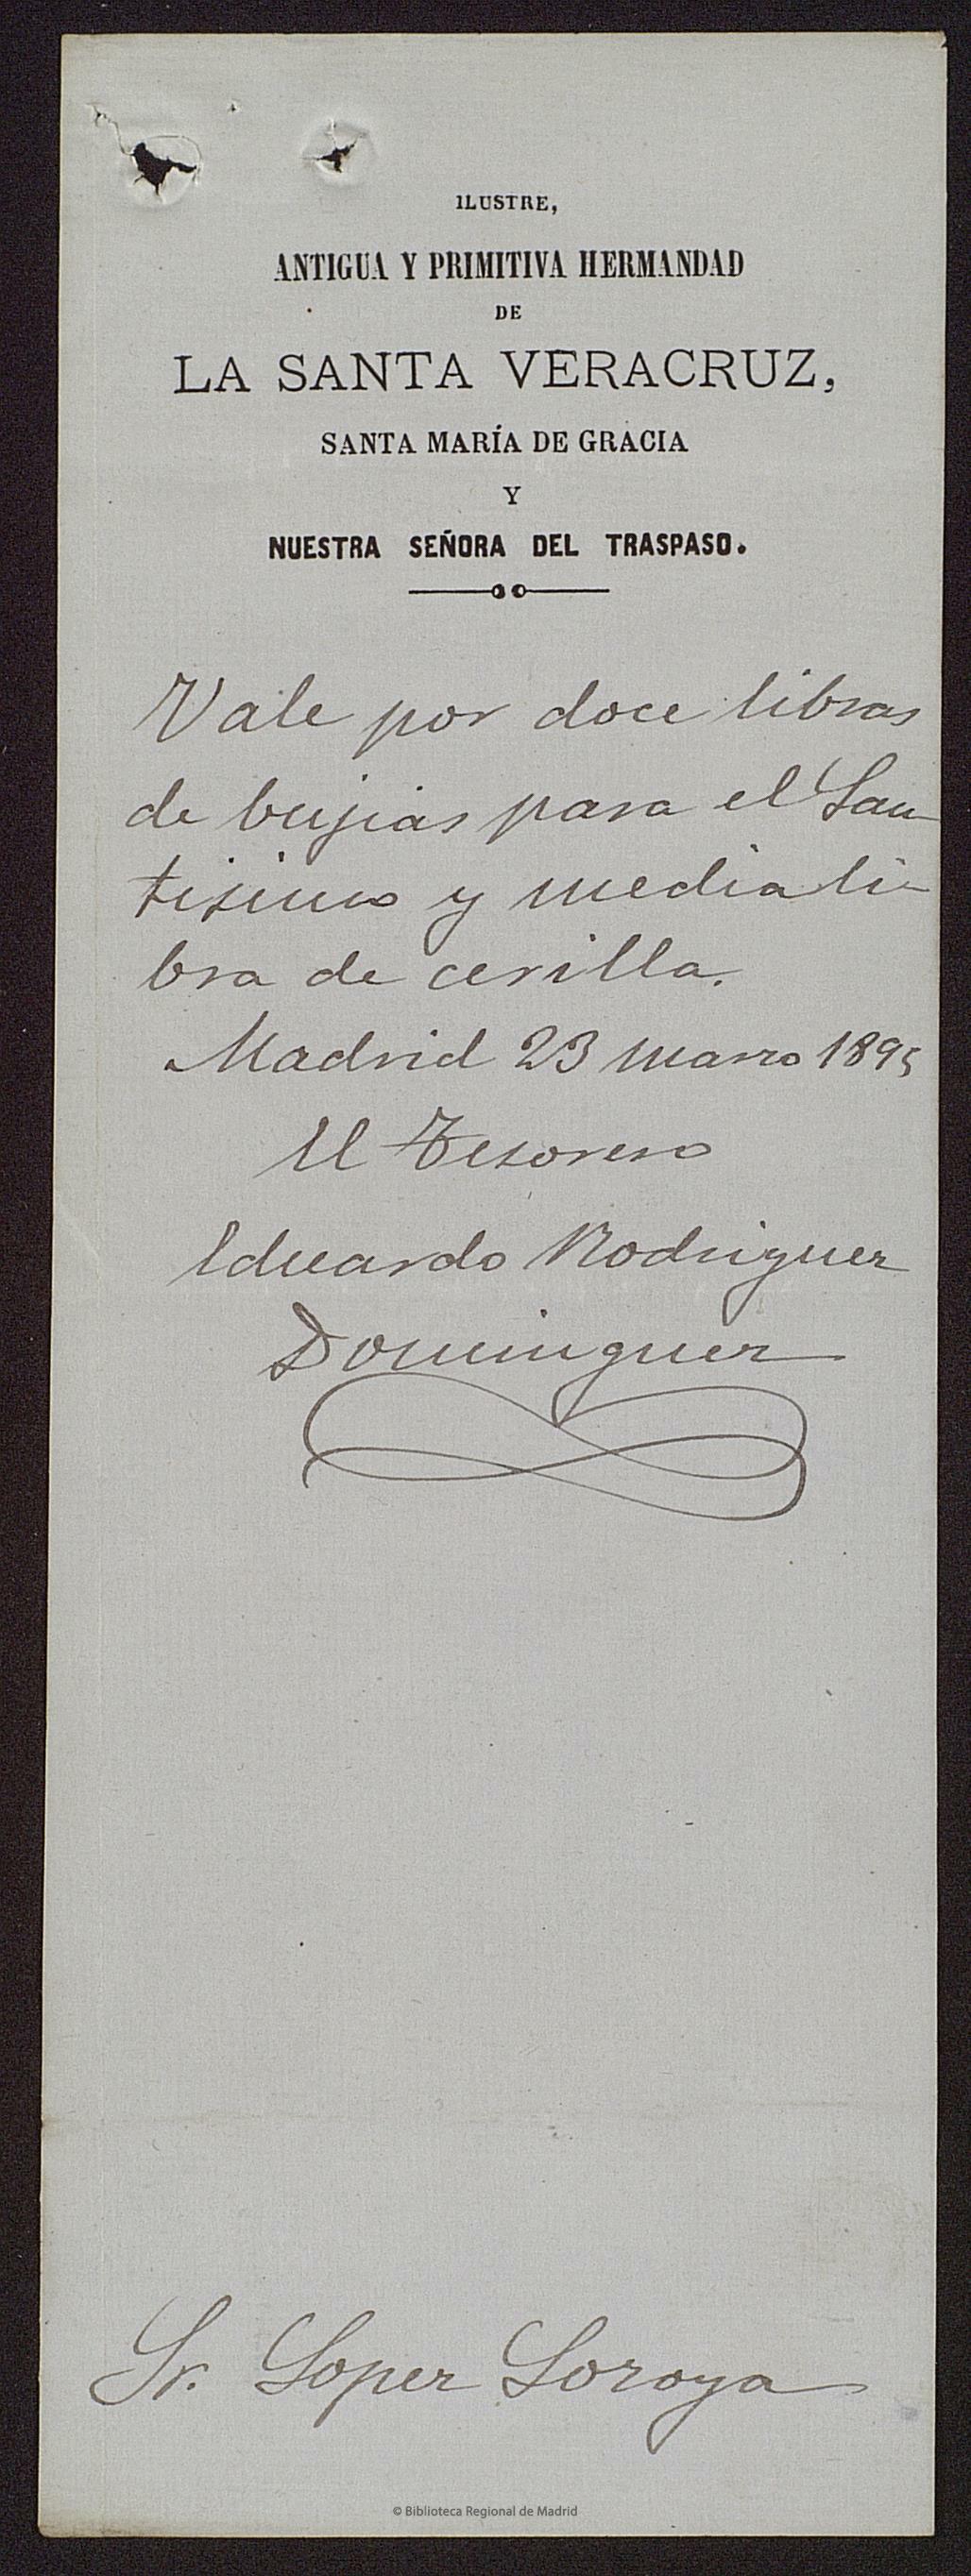 ILUSTRE,
ANTIGUA Y PRIMITIVA HERMANDAD
DE
LA SANTA VERACRUZ,
SANTA MARÍA DE GRACIA
Y
NUESTRA SEÑORA DEL TRASPASO.
Vale por doce libras
de bujias para el San-
tisimo y media li-
bra de cerilla.
Madrid 23 marzo 1895
El Tesorero
Eduardo Rodriguez
Dominguez
Sr. Lopez Loroya
© Biblioteca Regional de Madrid